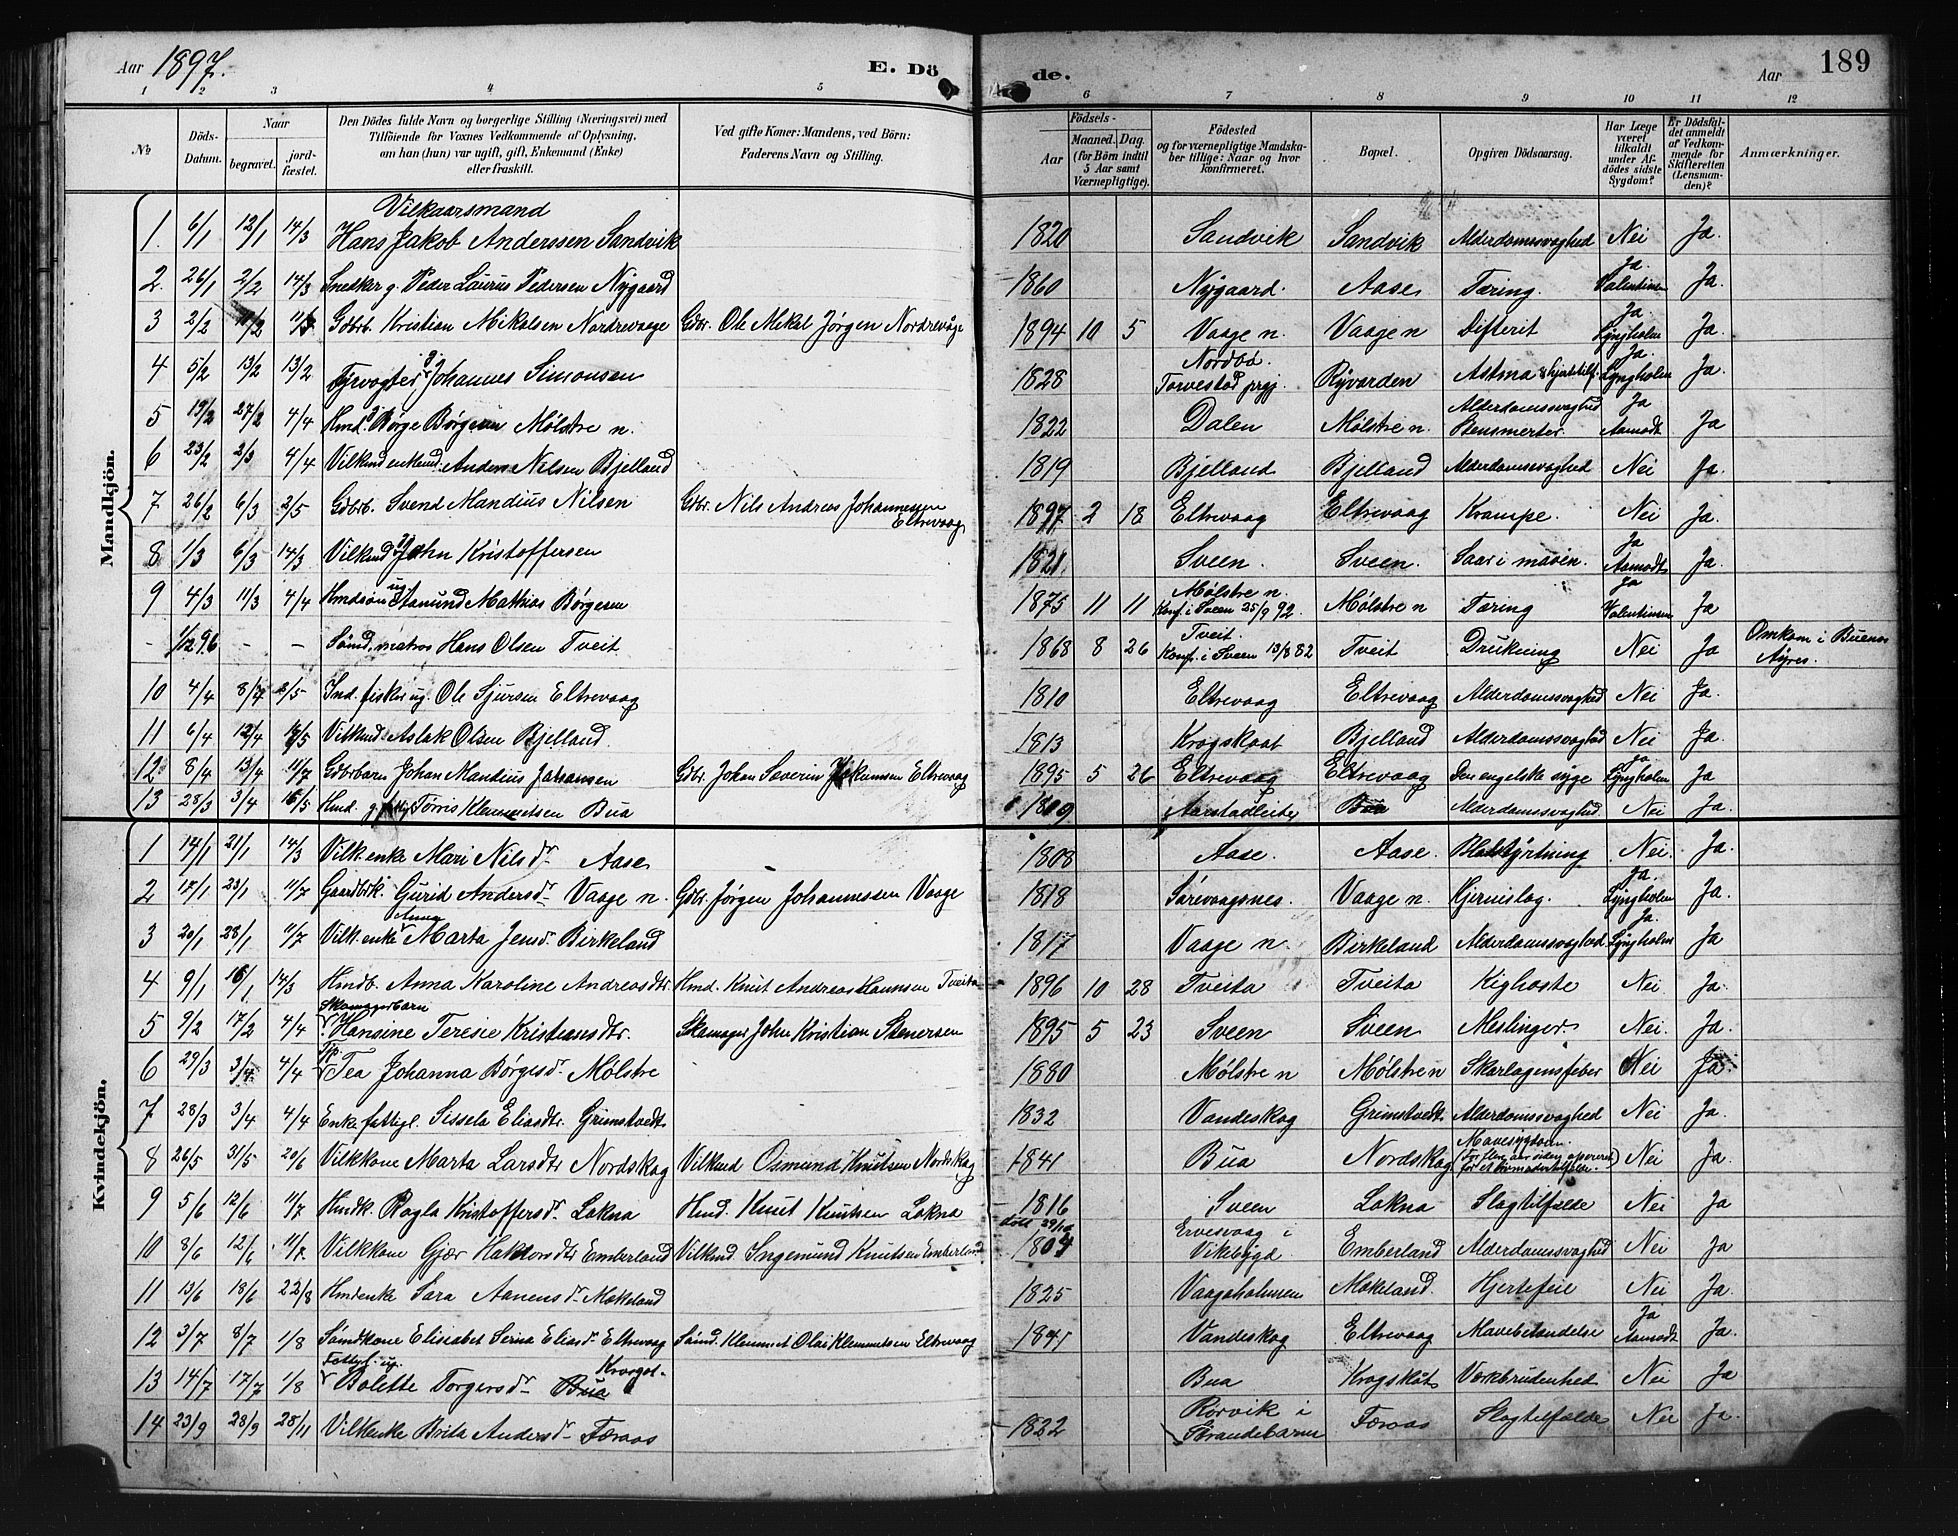 Aar 1897. E. Dö de. Aar 189
1 2 3 4 5 6 7 8 9 10 11 12
No
Döds-Datum.
Naar
begravet.
jord-fæstet.
Den Dödes fulde Navn og borgerlige Stilling (Næringsvei) med
Tilföiende for Voxnes Vedkommende af Oplysning,
om han (hun) var ugift, gift, Enkemand (Enke)
eller fraskilt.
Ved gifte Koner: Mandens, ved Börn:
Faderens Navn og Stilling.
Födsels-
Aar
Maaned. Dag.
(for Börn indtil
5 Aar samt
Værnepligtige).
Födested
og for værnepligtige Mandska-
ber tillige: Naar og hvor
konfirmeret.
Bopæl.
Opgiven Dödsaarsag.
Har Læge
været
tilkaldt
under Af-
dödes sidste
Sygdom?
Er Dödsfal-
det anmeldt
af Vedkom-
mende for
Skifteretten
(Lensman-
den)?
Anmærkninger.
Mandkjön.
Vilkaarsmand
1. 6/1 12/1 14/3 Hans Jakob Anderssen Sandvik 1820 Sandvik Sandvik Alderdomssvaghed Nei Ja.
2. 26/1 2/2 14/3 Snekker g. Peder Laurus Pedersen Nygaard 1860 Nygaard. Aase Tæring. Ja Valentinsen Ja.
3 2/2 Gdbrb. Kristian Mikalsen Nordrevaage Gbr. Ole Mekal Jørgen Nordrevåge 1894 10 5 Vaage n. Vaage n Difterit Ja Lyngholm Ja.
4 5/2 13/2 13/2 Fyrvogter g. Johannes Simonsen 1828 Nordbø. Torvestad prgj. Ryvarden Astma Ja. Lyngholm Ja.
5 19/2 27/2 4/4 Hmd. g Børge Børgesen Mølstre n. 1822 Dalen Mølstre n. Alderdomssvaghed Stensmerter. Ja Aamodt Ja
6 23/2 2/3 4/4 Vilkmd enkemd. Anders Nilsen Bjelland 1819 Bjelland Bjelland Alderdomssvaghed Nei Ja.
7 26/2 6/3 2/5 Gdbrb. Svend Mandius Nilsen Gbr. Nils Andreas Johannessen Eltrevaag 1897 2 18 Eltrevaag Eltrevaag Krampe. Nei Ja.
8 1/3 6/3 14/3 Vilkmd g John Kristoffersen 1821. Sveen. Sveen. Saar i maven. Ja Aamodt Ja.
9 4/3 11/3 4/4 Hmdsøn ug. Aamund Mathias Børgesen 1875 11 11 Mølstre n. Konf. i Sveen 25/9 92. Mølstre n Tæring Ja Valentinsen Ja
- 1/12 96 - - Sømd. matros Hans Olsen Tveit 1868 8 26 Tveit. Konf. i Sveen 13/8 82 Tveit Drukning Nei Ja Omkom i Buenos Ayres.
10 4/4 8/4 2/5 Ind. fisker ug. Ole Sjursen Eltrevaag 1810 Eltrevaag Eltrevaag Alderdomssvaghed Nei Ja.
11 6/4 12/4 Vilkmd. Aslak Olsen Bjelland. 1813 Krogskaat Bjelland Alderdomssvaghed Nei Ja.
12 8/4 13/4 11/7 Gdbrbarn Johan Mandius Johansen Gbr. Johan Severin Jokumsen Eltrevaag 1895 5 26 Eltrevaag Eltrevaag Den engelske syge Ja Lyngholm Ja
13 28/3 3/4 16/5 Hmd. g. Torris Klemmetsen Bua 1809 Aarstadleite Bua Alderdomssvaghed. Nei Ja.
Kvindekjön.
1 14/1 21/1 14/3 Vilk. enke Mari Nilsdr Aase 1808 Aase. Aase. Blodstyrtning Nei. Ja.
2 17/1 23/1 11/7 Gaardbrk. Gurid Andersdr Vaage n. Gbr. Jørgen Johannessen Vaage 1818 Sørevaagsnes. Vaage n. Hjerneslag. Ja. Lyngholm Ja.
3 20/1 28/1 11/7 Vilk. enke Anna Marta Jensdr. Birkeland 1817 Vaage n Birkeland Alderdomssvaghed Ja. Lyngholm Ja
4 9/1 16/1 14/3 Hmdb. Anna Karoline Andreasdtr. Hmd. Knut Andreas Hansen Tveita 1896 10 28 Tveita Tveita Kighoste Nei. Ja.
5 9/2 17/2 4/4 Skomagerbarn Hansine Teresie Kristiansdtr. Skomager John Kristian Stenersen 1895 5 23 Sveen Sveen Meslinger. Nei. Ja.
6 29/3 3/4 4/4 Tea Johanna Børgesdr Mølstre 1880 Mølstre n Mølstre n Skarlagensfeber Nei Ja.
7 28/3 3/4 4/4 Enke fattigl. Sissela Eliasdtr. Grimstvedt 1832 Vandeskog Grimstvedt Alderdomssvaghed Nei Ja.
8 26/5 31/5 20/6 Vilkkone Marta Larsdtr Nordskog Vilkmd Osmund Knutsen Nordskog 1841 Bua Nordskog Mavesygdom. (For flere aar siden opereret Nei Ja
9 5/6 12/6 11/7 Hmdk. Ragla Kristoffersdr. Lokna Hmd. Knut Knutsen Lokna 1816 Sveen Lokna Slagtilfælde Nei Ja
10 8/6 12/6 11/7. Vilkkone Gjær Haktorsdtr Emberland Vilkmd Ingemund Knutsen Emberland døbt 29/10 1804 Ervesvaag i Vikebygd Emberland Alderdomssvaghed Nei Ja
11 13/6 18/6 22/8 Hmdenke Sara Aanensdr Mækeland 1825 Vaagaholmen Mækeland. Hjertefeil Nei Ja.
12 3/7 8/7 1/8 Sømdkone Elisabet Serina Eliasdr Eltrevaag Sømd. Klemmet Olai Klemmetsen Eltrevaag 1841 Vandeskog Eltrevaag Mavebetændelse Ja Aamodt Ja.
13 14/7 17/7 1/8 Fattigl. ug. Bolette Torgersdr Bua Bua Krogskåt Værkbrudenhed Nei Ja
14 23/9 28/9 28/11 Vilkenke Brita Andersdr Færaas 1822 Rørvik i Strandebarm Færaas Slagtilfælde Nei Ja.